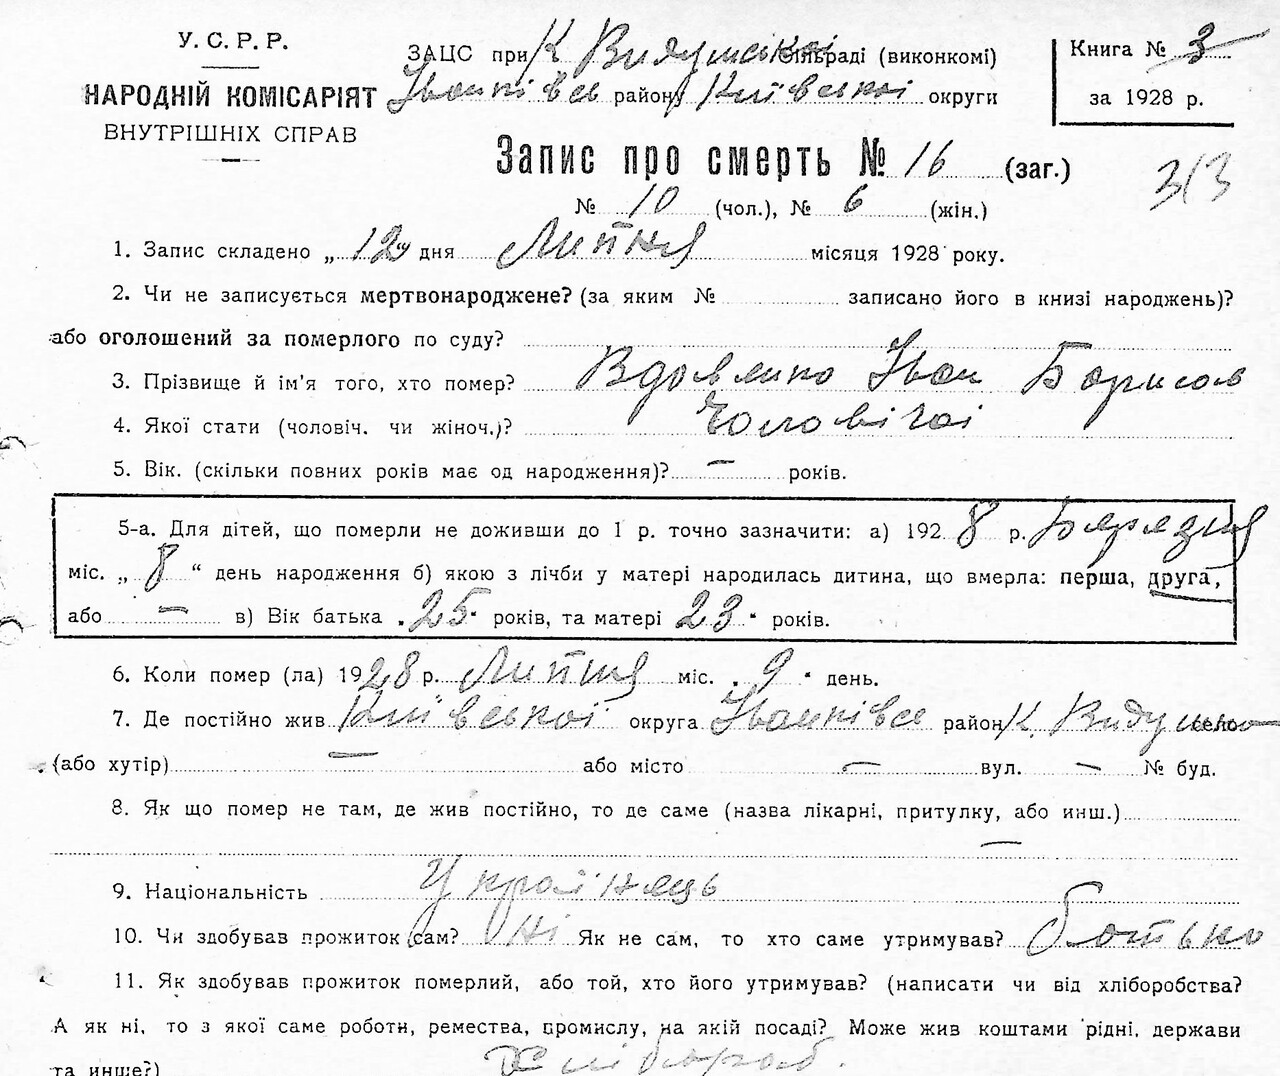 У. С. Р. Р.
НАРОДНІЙ КОМІСАРІЯТ
ВНУТРІШНІХ СПРАВ
ЗАЦС при К Видумській сільраді (виконкомі)
Іванківськ району Київської округи
Книга № 3
за 1928 р.
Запис про смерть № 16 (заг.)
313
№ 10 (чол.), № 6 (жін.)
1. Запис складено „ 12 " дня Липня місяця 1928 року.
2. Чи не записується мертвонароджене? (за яким № записано його в книзі народжень)?
або оголошений за померлого по суду?
3. Прізвище й ім'я того, хто помер? Вдовенко Іван Борисов
4. Якої стати (чоловіч. чи жіноч.)? Чоловічої
5. Вік. (скільки повних років має од народження)? — років.
5-а. Для дітей, що померли не доживши до 1 р. точно зазначити: а) 1928 р. Березня
міс. „ 8 " день народження б) якою з лічби у матері народилась дитина, що вмерла: перша, друга,
або — в) Вік батька 25 років, та матері 23 років.
6. Коли помер (ла) 1928 р. Липня міс. 9 день.
7. Де постійно жив Київської округа Іванківськ район К. Видумка село
(або хутір) — або місто — вул. — № буд.
8. Як що помер не там, де жив постійно, то де саме (назва лікарні, притулку, або инш.)
—
9. Національність Українець
10. Чи здобував прожиток сам? Ні Як не сам, то хто саме утримував? батько
11. Як здобував прожиток померлий, або той, хто його утримував? (написати чи від хліборобства?
А як ні, то з якої саме роботи, ремества, промислу, на якій посаді? Може жив коштами рідні, держави
та инше?) Хлібороб.